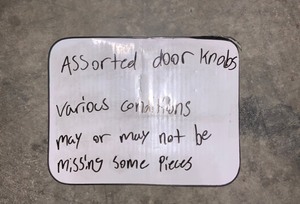 Assorted door knobs
various conditions
may or may not be
missing some pieces